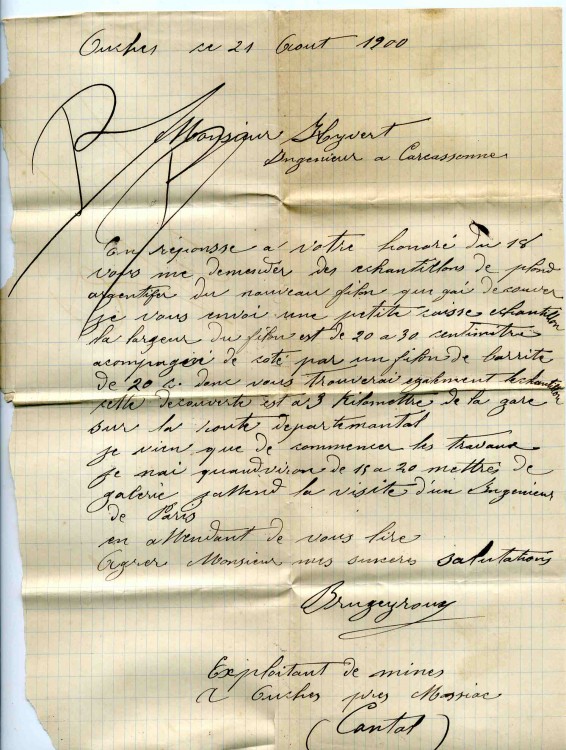 Ouches le 21 Aout 1900
Monsieur Hyvert
Ingenieur a Carcassonne
En réponsse a votre honoré du 18
vous me demender des echantillons de plond
argentifer du nouveau filon que gai decouver
je vous envoi une petite caisse echantillon
la largeur du filon est de 20 a 30 centimitre
acompagnéi de coté par un filon de barrite
de 20 c. donc vous trouverai egalment lechantillon
cette decouverte est a 3 Kilomettre de la gare
sur la route departemantal
je vien que de commencer les travaux
je nai quandviron de 15 a 20 mettres de
galerie jattend la visite d'un Ingenieur
de Paris
en attendant de vous lire
Agrer Monsieur mes sinceres salutations
Brugeyroux
Exploitant de mines
a Ouches pres Massiac
(Cantal)